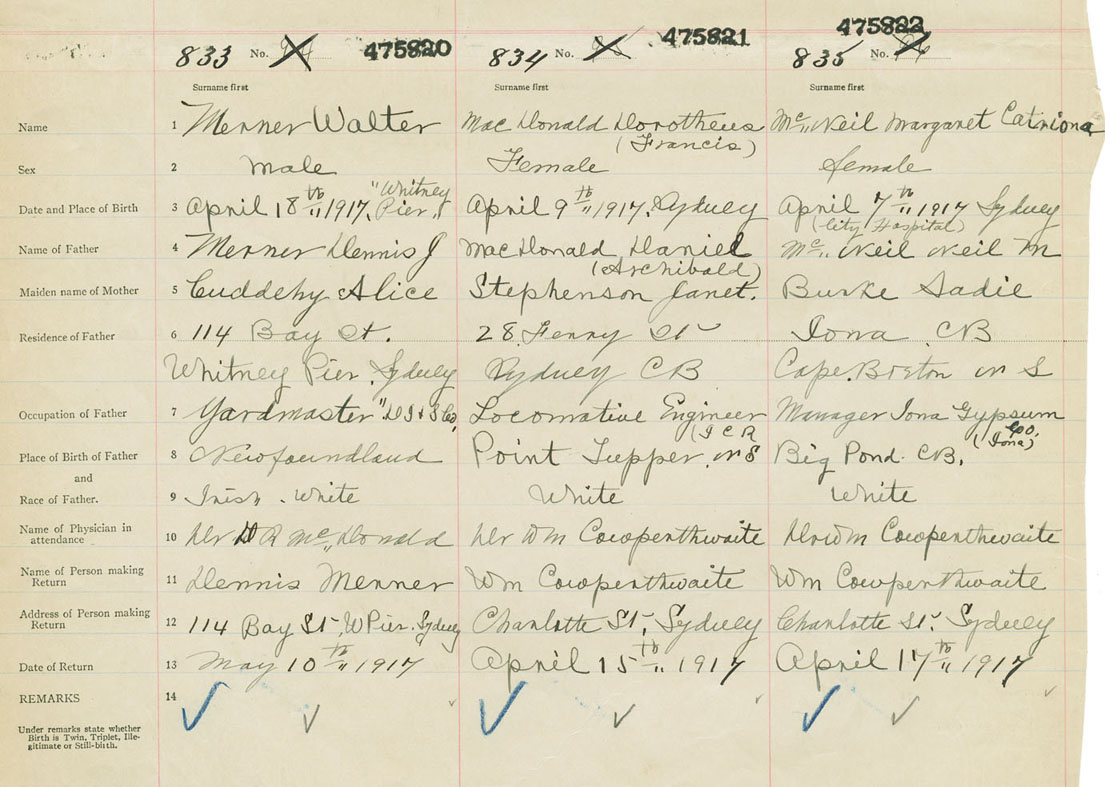 833 No. 475820
834 No. 475821
835 No. 475822
Surname first Surname first Surname first
Name 1 Menner Walter Mac Donald Dorotheus (Francis) Mc„ Neil Margaret Catriona
Sex 2 Male Female female
Date and Place of Birth 3 April 18th„ 1917, "Whitney Pier," April 9th„ 1917. Sydney April 7th„ 1917 Sydney (City Hospital)
Name of Father 4 Menner Dennis J Mac Donald Daniel (Archibald) Mc„ Neil Neil M
Maiden name of Mother 5 Cuddehy Alice Stephenson Janet. Burke Sadie
Residence of Father 6 114 Bay St. 28 Ferry St Iona CB
Whitney Pier, Sydney Sydney CB Cape Breton N S
Occupation of Father 7 Yardmaster "D I & S Co, Locomative Engineer (I C R Manager Iona Gypsum Co, (Iona)
Place of Birth of Father 8 Newfoundland Point Tupper, N S Big Pond. CB,
and
Race of Father. 9 Irish . White White White
Name of Physician in attendance 10 Dr D R Mc„ Donald Dr Wm Cowpenthwaite Dr Wm Cowpenthwaite
Name of Person making Return 11 Dennis Menner Wm Cowpenthwaite Wm Cowpenthwaite
Address of Person making Return 12 114 Bay St, W Pier. Sydney Charlotte St, Sydney Charlotte St, Sydney
Date of Return 13 May 10th„ 1917 April 15th„ 1917 April 17th„ 1917
REMARKS 14
Under remarks state whether
Birth is Twin, Triplet, Ille-
gitimate or Still-birth.